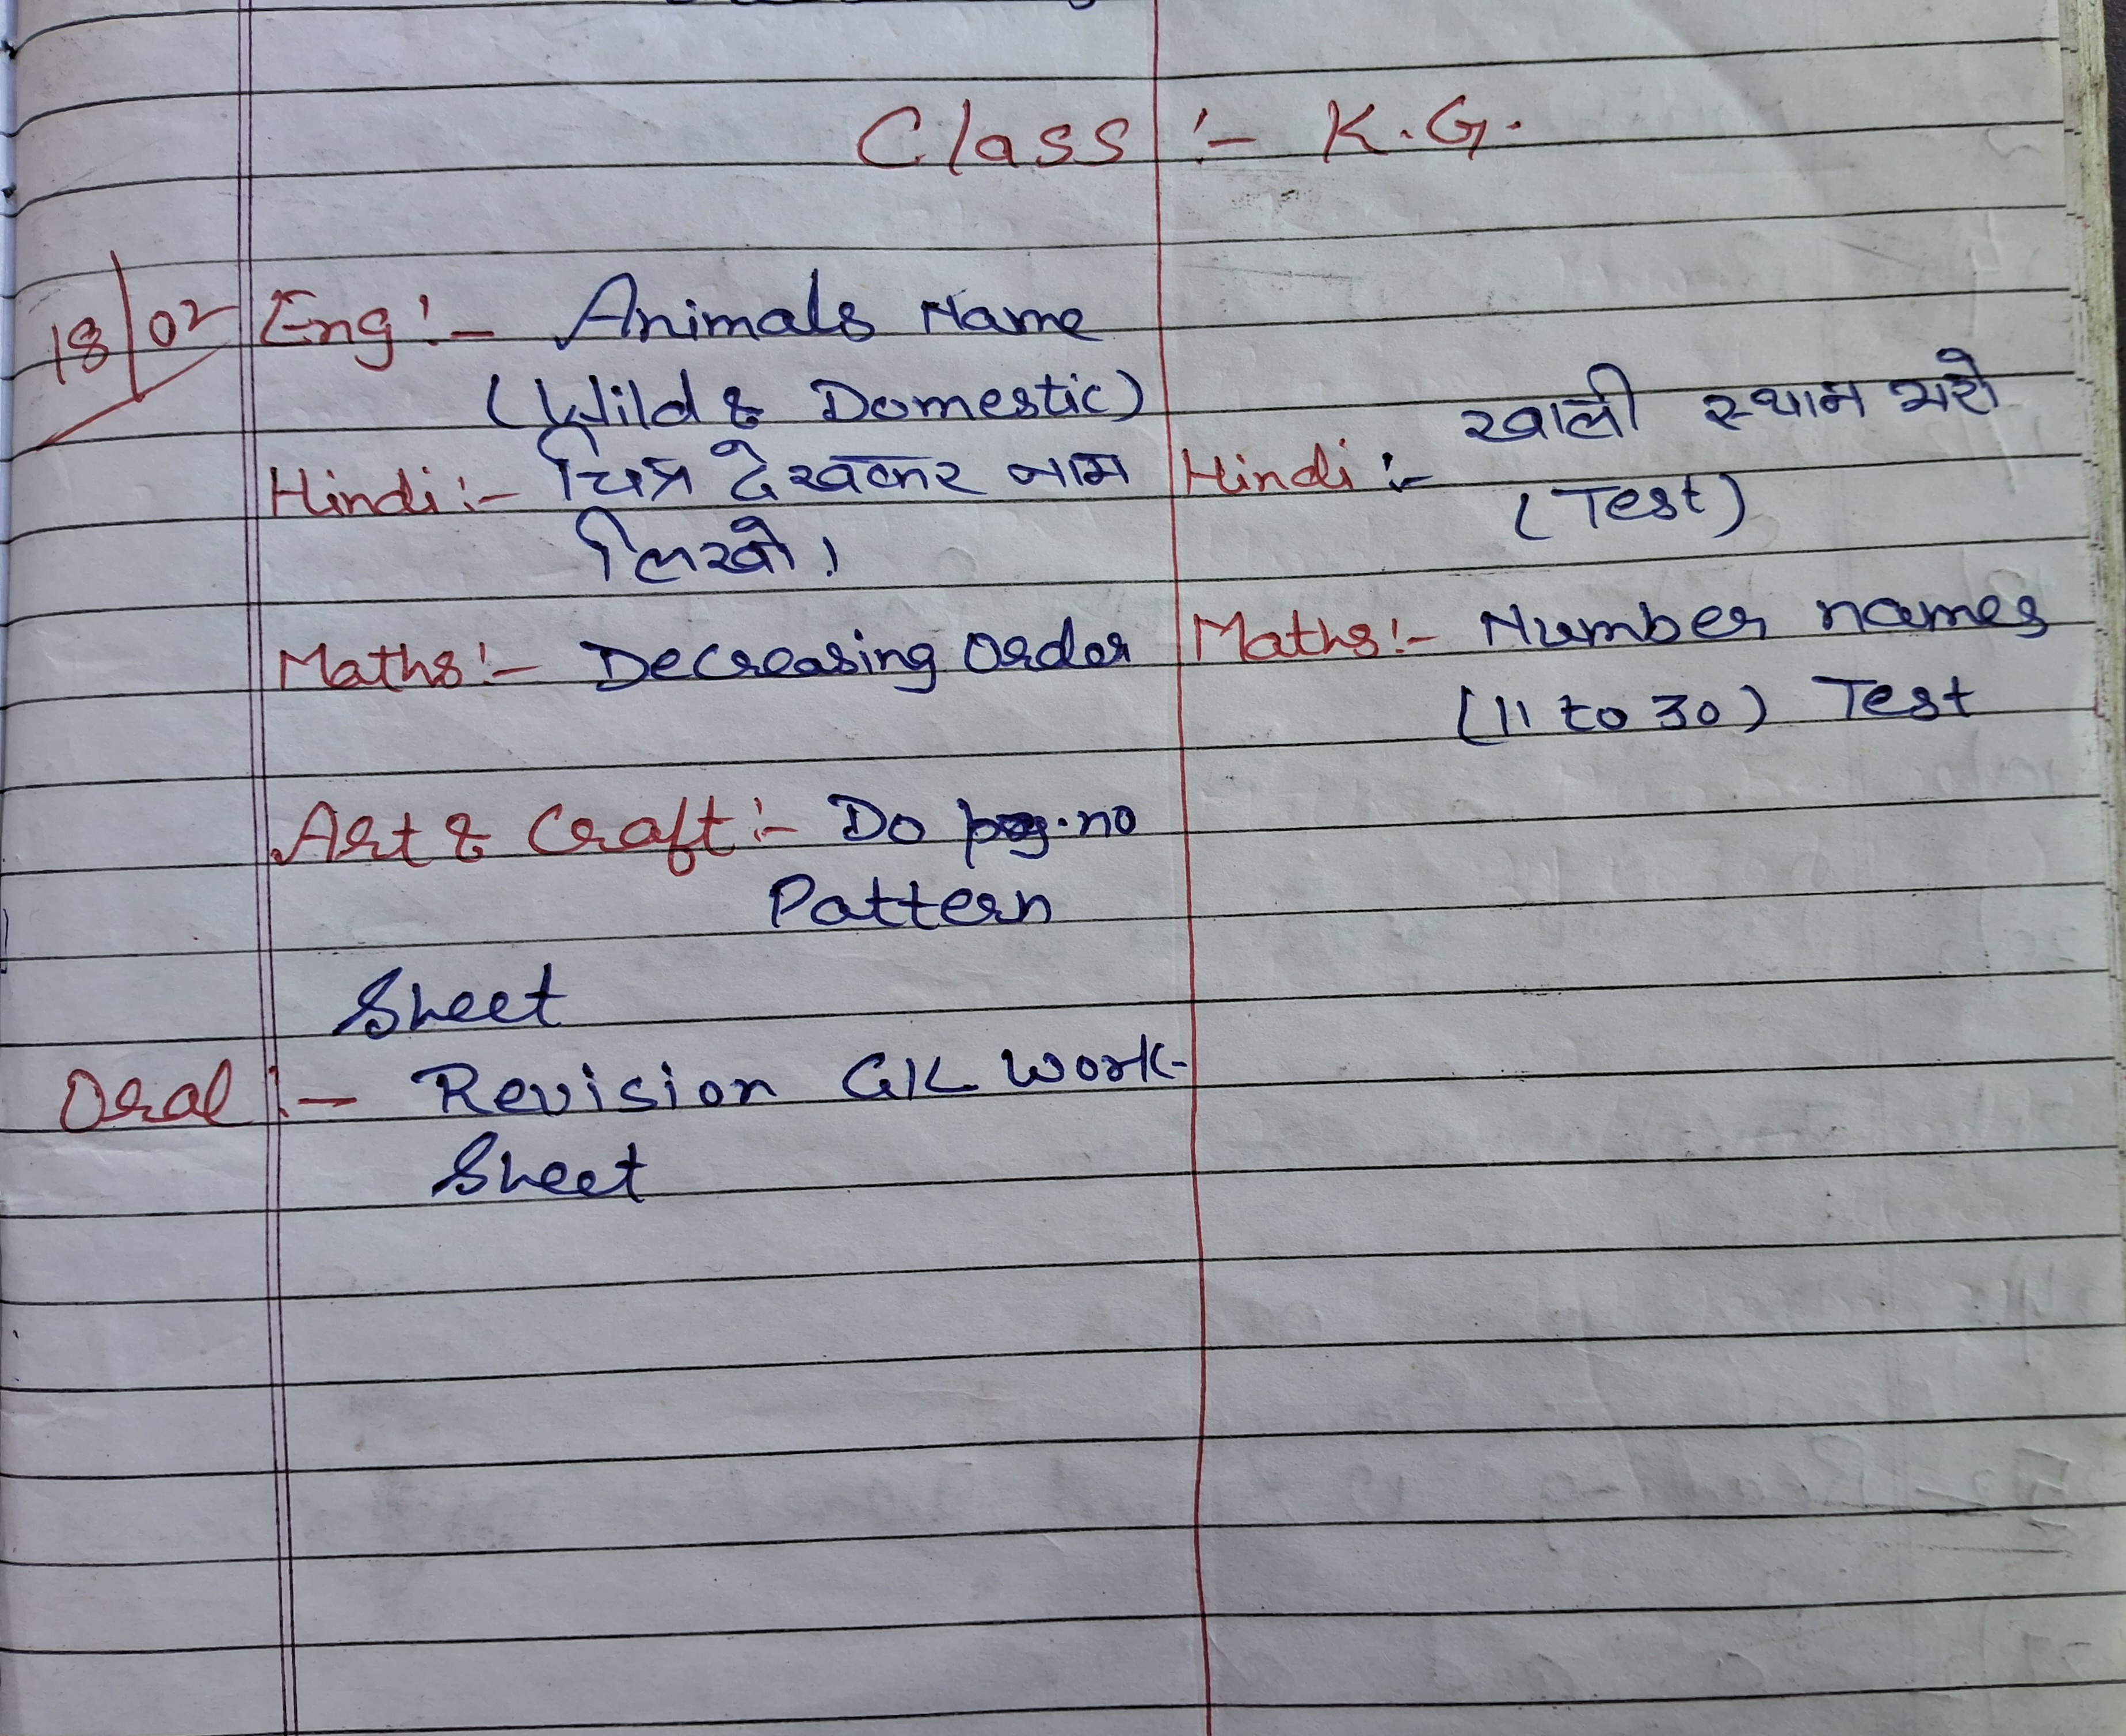 Class :- K.G.
18/02
Eng :- Animals Name
(Wild & Domestic)
Hindi :- चित्र देखकर नाम
लिखो।
Maths :- Decreasing Order
Art & Craft :- Do pg.no
Pattern
Sheet
Oral :- Revision GK Work-
Sheet
खाली स्थान भरो
Hindi :-
(Test)
Maths :- Number names
(11 to 30) Test